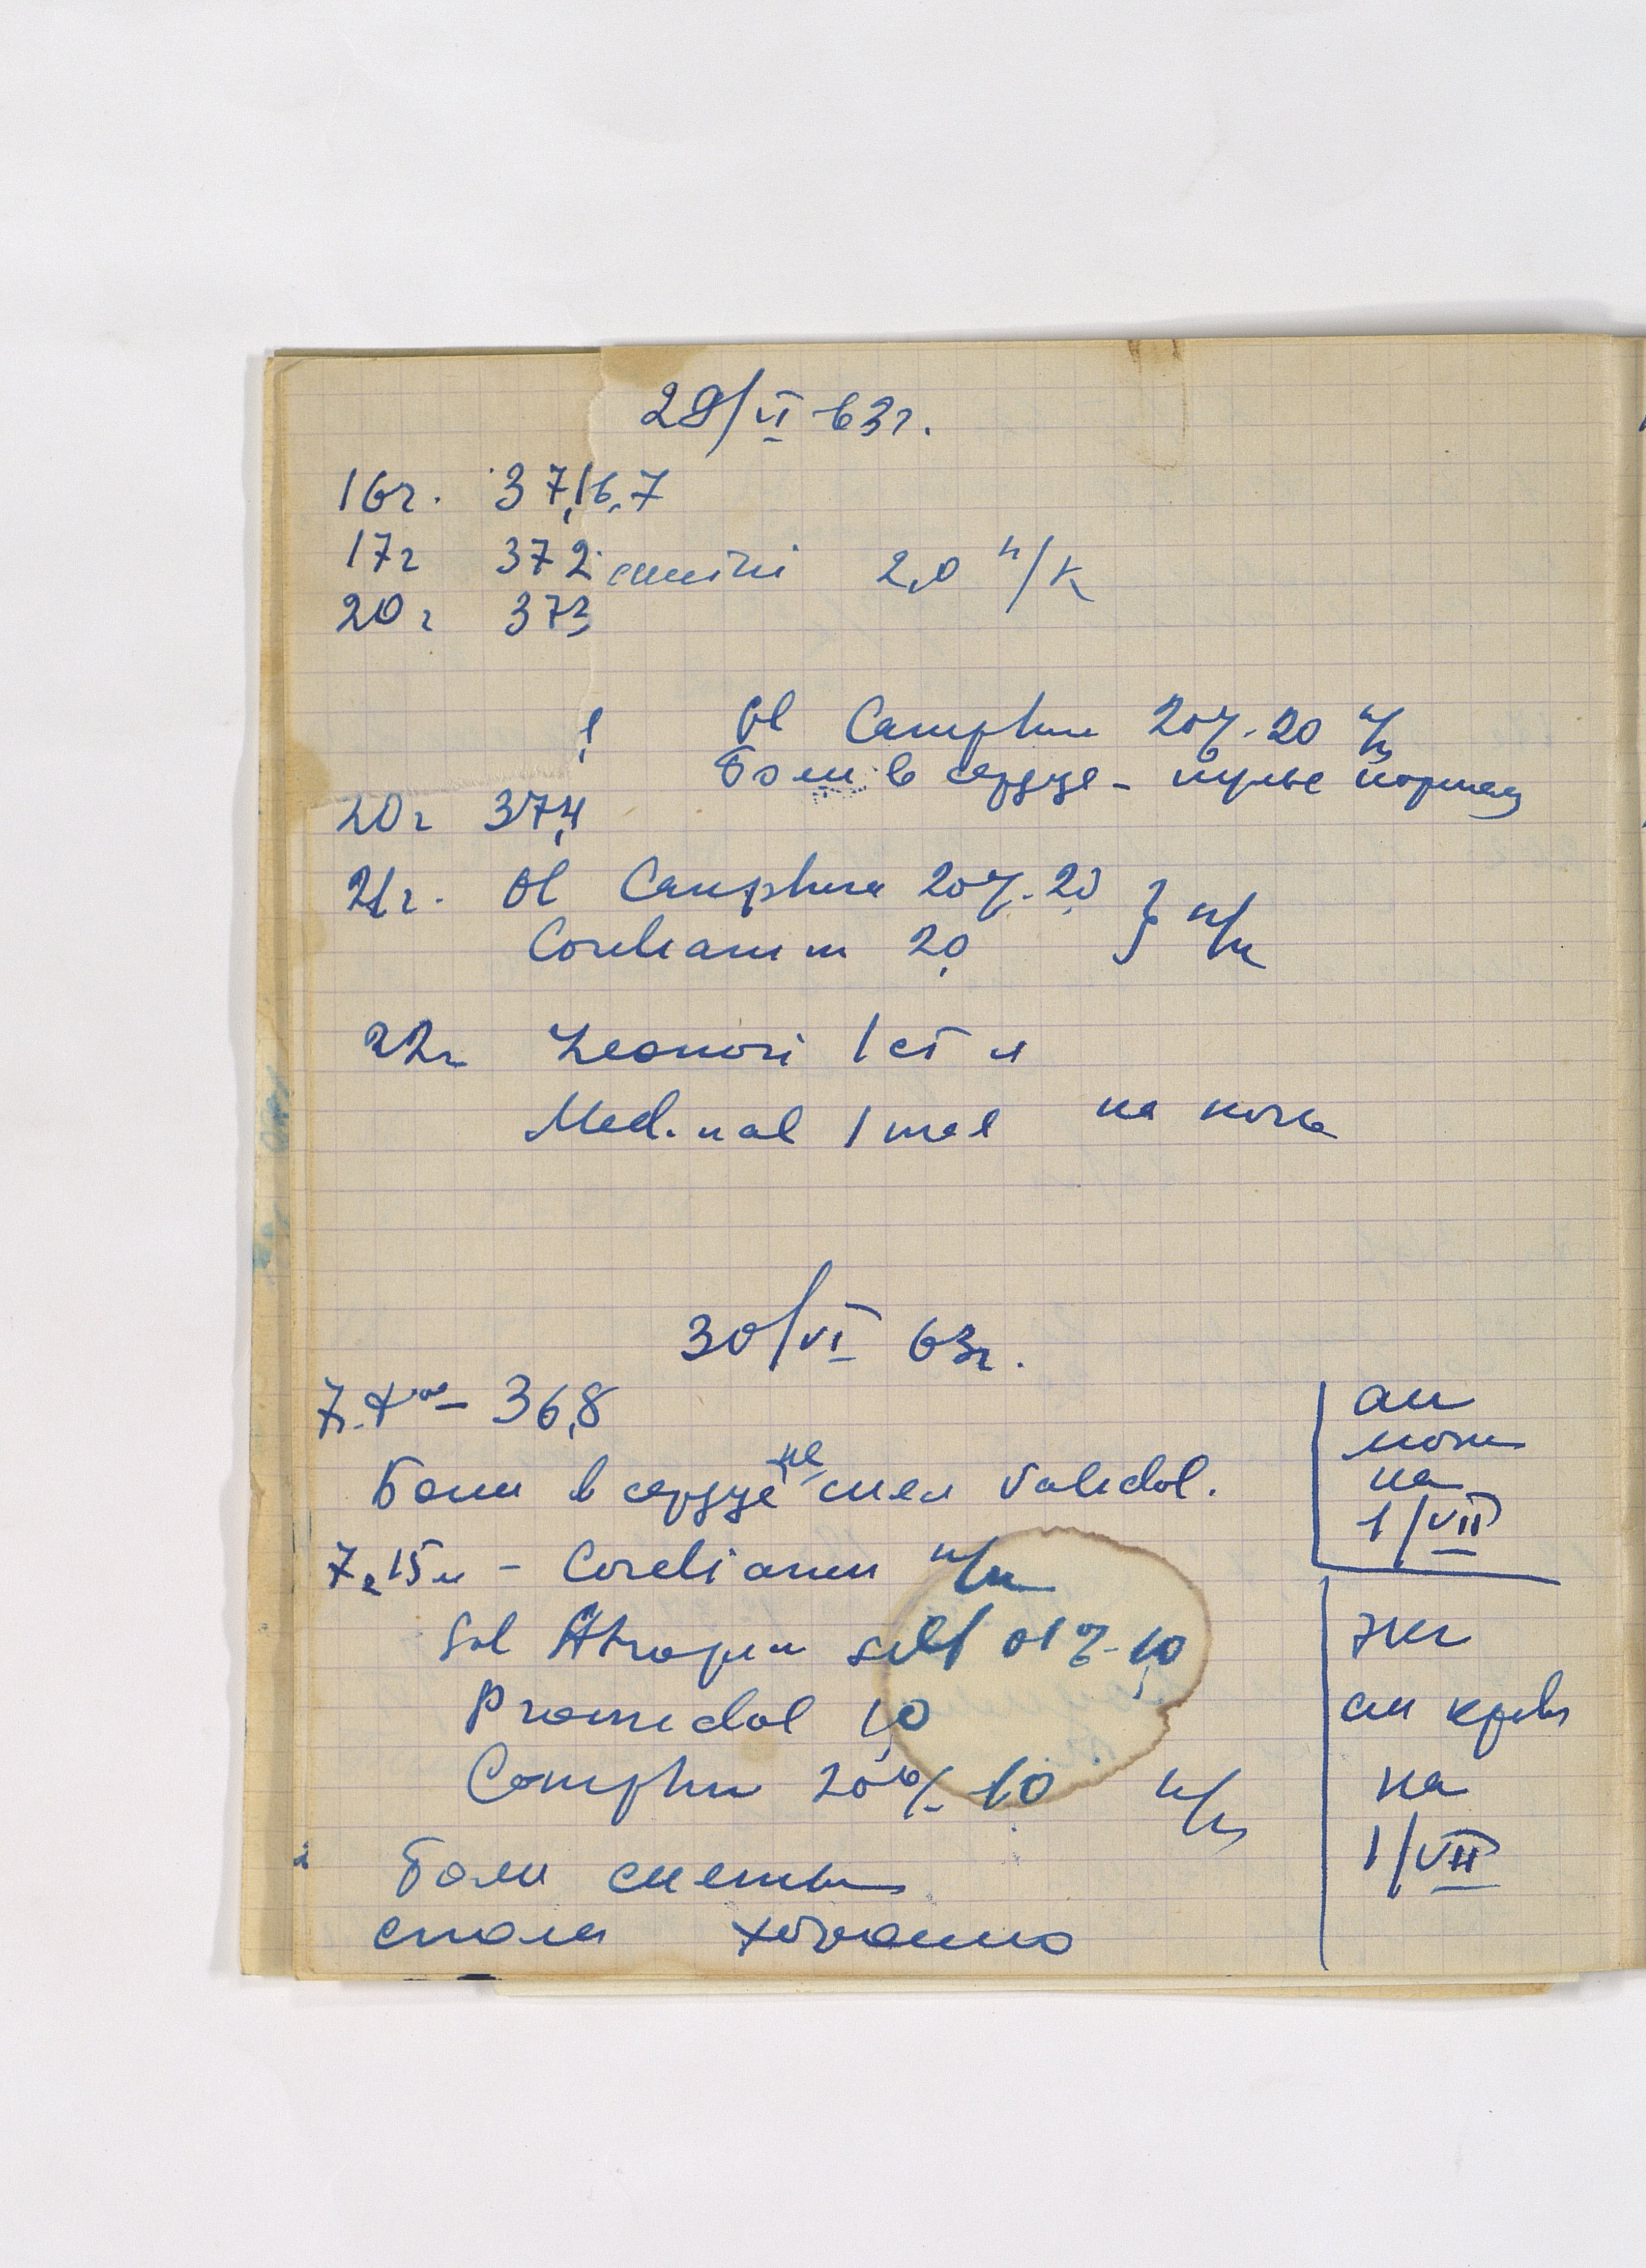 29/VI 63г.
16г. 37,1 6,7
17г 37,2 2,0 п/к
20г 37,3
Ol Camphur 20%-20 п/к
Боли в сердце - пульс нормал
20г 37,4
21г. Ol Camphura 20%-2,0 } п/к
Cordiamin 2,0
22г Leonuri 1 ст л
Medinal 1 таб на ночь
30/VI 63г.
7г. t° - 36,8
Боли в сердце не снял Validol.
7г 15м - Cordiamin п/к
Sol Atropin sulf 01%-1,0
Promedol 1,0
Camphur 20%-1,0 п/к
Боли сняты
спала хорошо
ан
мочи
на
1/VII
ЭКГ
ан крови
на
1/VII